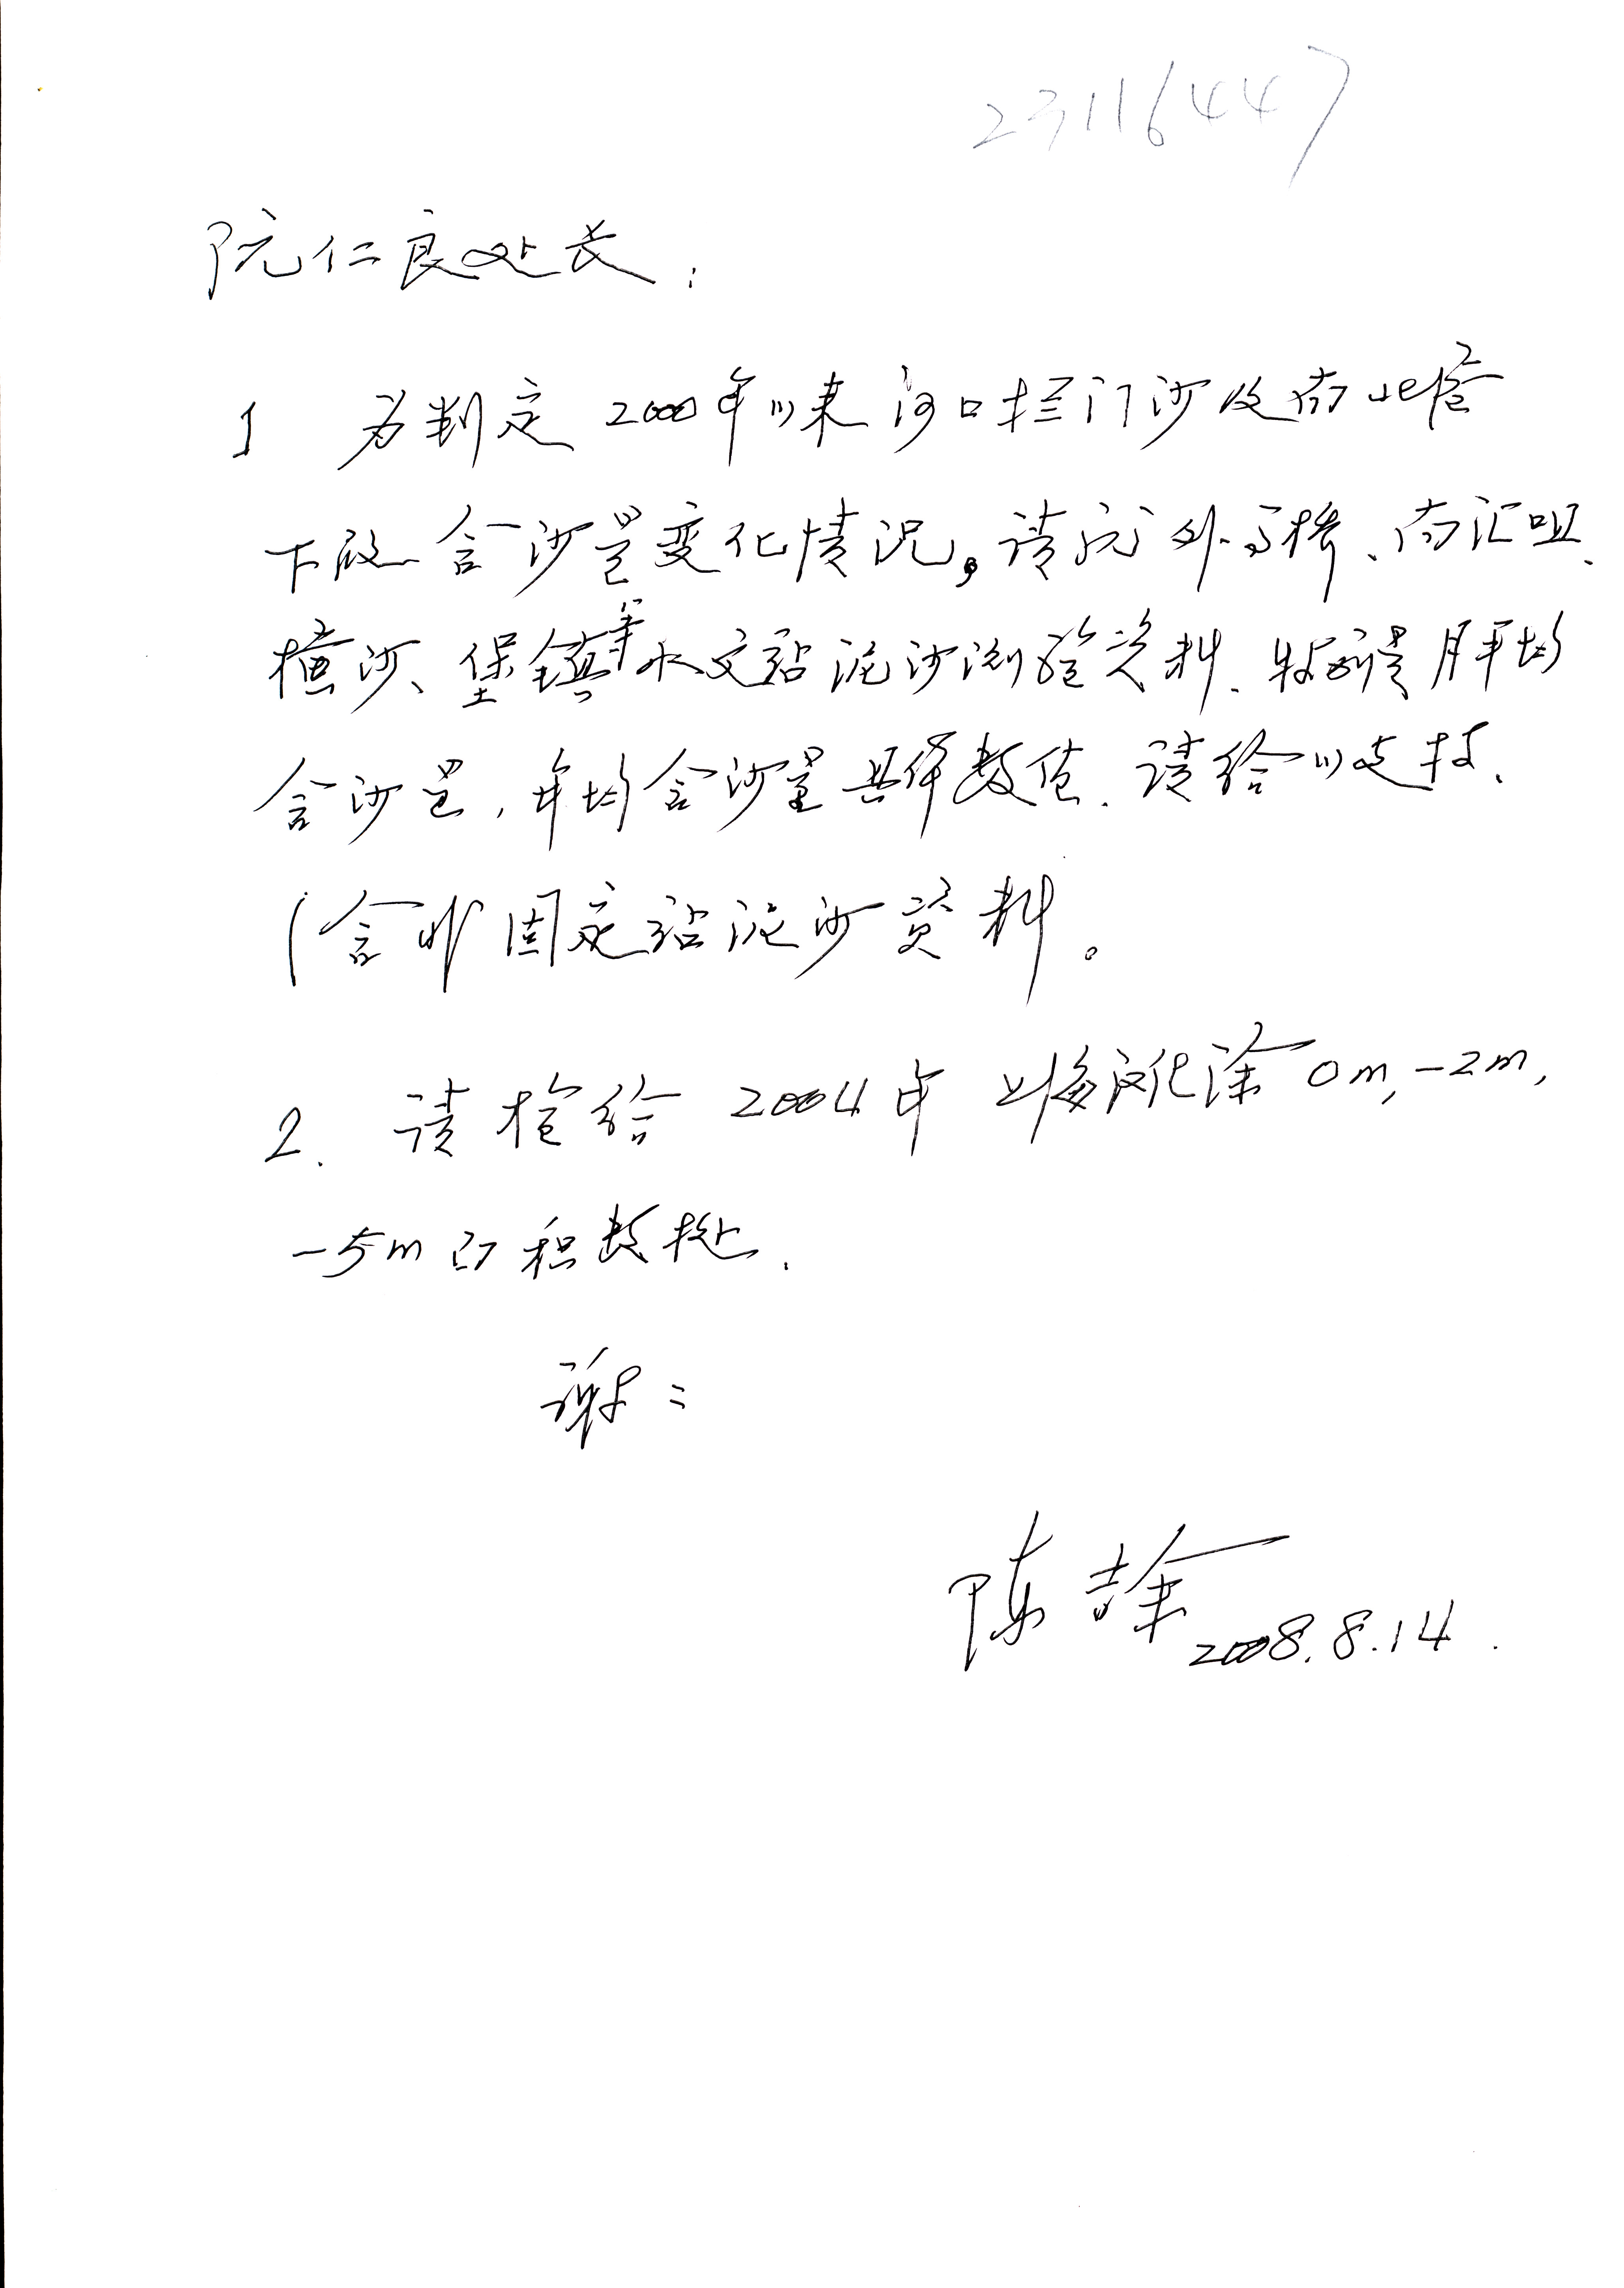 23116447
阮仁良处长：
1 为判定2000年以来河口拦门沙及南北槽
下段含沙量变化情况。请阮外高桥、南汇咀、
横沙、堡镇等水文站泥沙测验资料、特别是月平均
含沙量，年均含沙量具体数值、请给以支持、
(含非固定站泥沙资料。
2. 请抢给2004年上海滩涂0m,-2m,
-5m面积数据.
谢=
陈吉余
2008.8.14.